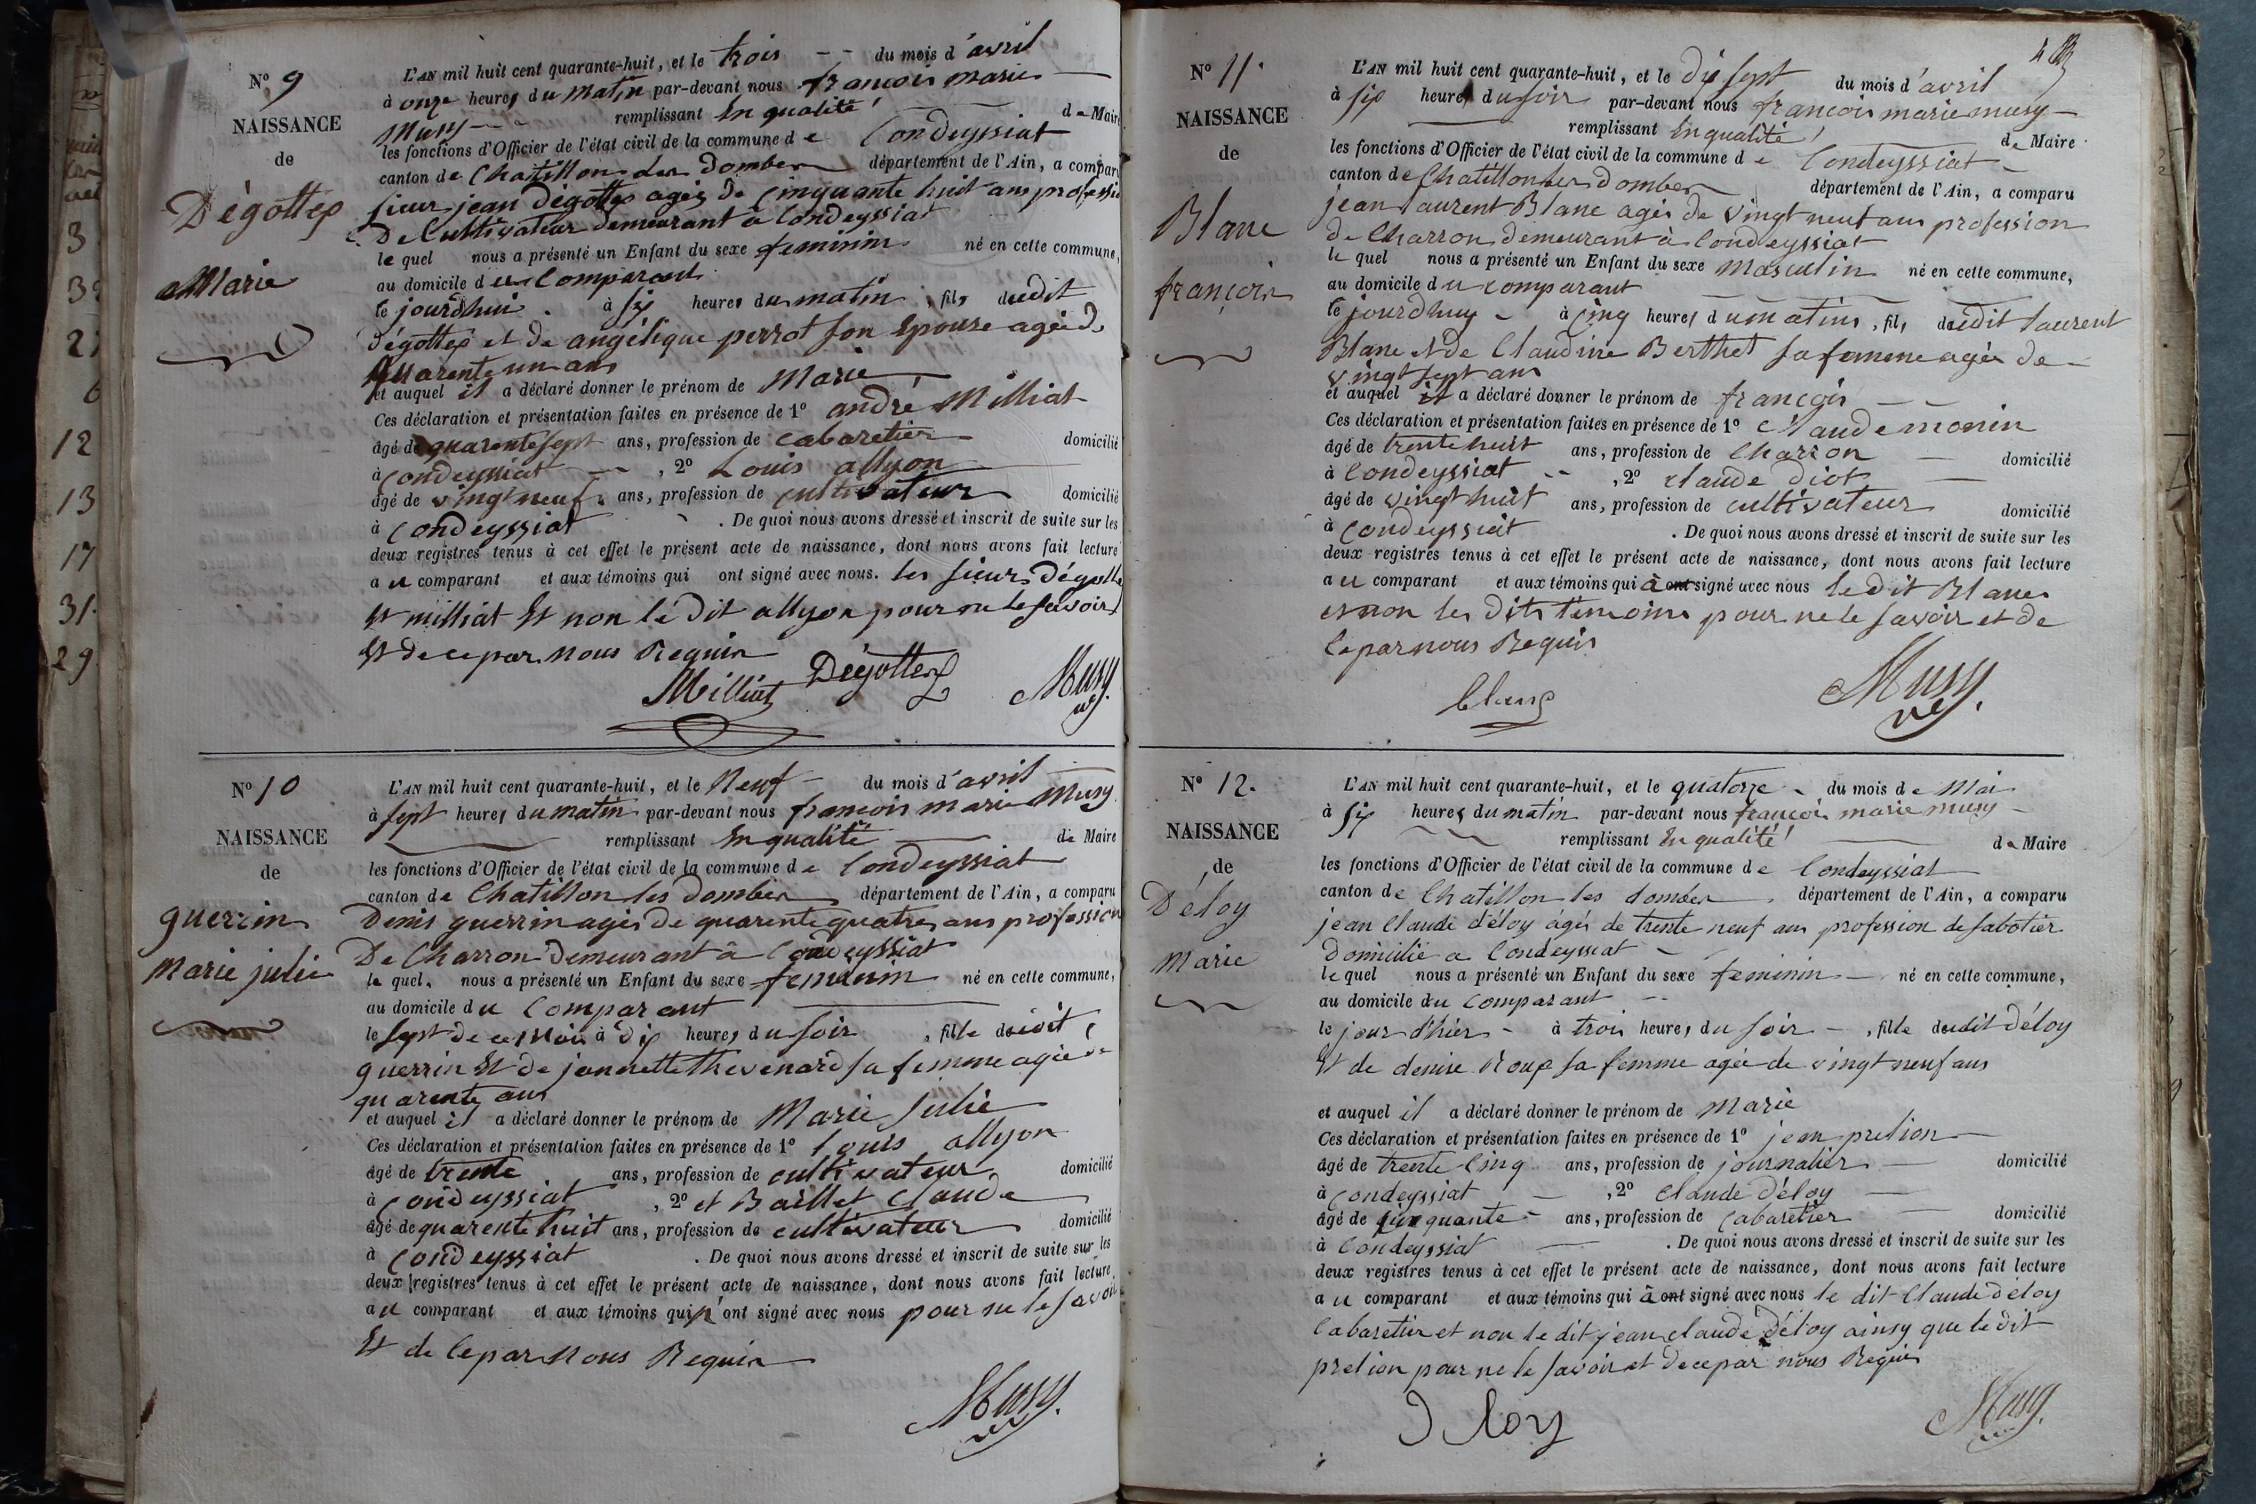 N° 9
NAISSANCE
de
Dégottex
Marie
L'AN mil huit cent quarante-huit, et le trois du mois d'avril
à onze heures du matin par-devant nous françois marie
Musy remplissant En qualité de Maire
les fonctions d'Officier de l'état civil de la commune de Condeyssiat
canton de Chatillon les Dombes département de l'Ain, a comparu
sieur jean Dégottex agés de cinquante huit ans profession
De Cultivateur demeurant à Condeyssiat
le quel nous a présenté un Enfant du sexe feminin né en cette commune,
au domicile du Comparant
le jourdhui à six heures du matin, fils dudit
Dégottex et de angélique perrot son Epouse agée de
quarente un ans
et auquel il a déclaré donner le prénom de Marie
Ces déclaration et présentation faites en présence de 1° andré Milliat
âgé de quarente sept ans, profession de cabaretier domicilié
à condeyssiat, 2° Louis allyon
âgé de vingt neuf ans, profession de cultivateur domicilié
à condeyssiat. De quoi nous avons dressé et inscrit de suite sur les
deux registres tenus à cet effet le présent acte de naissance, dont nous avons fait lecture
au comparant et aux témoins qui ont signé avec nous. les sieurs Dégottex
Et milliat Et non lé dit allyon pour ne le savoir
Et de ce par nous Requis
Milliat Dégottex Musy
N° 10
NAISSANCE
de
guerrin
Marie julie
L'AN mil huit cent quarante-huit, et le Neuf du mois d'avril
à sept heures du matin par-devant nous françois marie Musy
remplissant En qualité de Maire
les fonctions d'Officier de l'état civil de la commune de Condeyssiat
canton de Chatillon les Dombes département de l'Ain, a comparu
Denis guerrin agés de quarente quatre ans profession
De Charron Demeurant à Condeyssiat
le quel. nous a présenté un Enfant du sexe feminin né en cette commune,
au domicile du Comparant
le sept de ce Mois à dix heures du soir, fille dudit
guerrin Et de jeannette thevenard sa femme agée de
quarente ans
et auquel il a déclaré donner le prénom de Marie Julie
Ces déclaration et présentation faites en présence de 1° louis allyon
âgé de trente ans, profession de cultivateur domicilié
à condeyssiat, 2° et Baillet Claude
âgé de quarente huit ans, profession de cultivateur domicilié
à condeyssiat. De quoi nous avons dressé et inscrit de suite sur les
deux registres tenus à cet effet le présent acte de naissance, dont nous avons fait lecture
au comparant et aux témoins qui n'ont signé avec nous pour ne le savoir
Et de Cepar Nous Requis
Musy
N° 11.
NAISSANCE
de
Blanc
françois
L'AN mil huit cent quarante-huit, et le dix sept du mois d'avril
à six heures du soir par-devant nous françois marie musy
remplissant En qualité de Maire
les fonctions d'Officier de l'état civil de la commune de Condeyssiat
canton de Chatillon les Dombes département de l'Ain, a comparu
jean Laurent Blanc agés de vingt neuf ans profession
de Charron demeurant à Condeyssiat
le quel nous a présenté un Enfant du sexe Masculin né en cette commune,
au domicile du comparant
le jourdhuy à cinq heures du matin, fils dudit Laurent
Blanc et de Claudine Berthet sa femme agée de
vingt sept ans
et auquel il a déclaré donner le prénom de françois
Ces déclaration et présentation faites en présence de 1° Claude monin
âgé de trente huit ans, profession de Charron domicilié
à Condeyssiat, 2° claude diot
âgé de vingt huit ans, profession de cultivateur domicilié
à Condeyssiat. De quoi nous avons dressé et inscrit de suite sur les
deux registres tenus à cet effet le présent acte de naissance, dont nous avons fait lecture
au comparant et aux témoins qui à ont signé avec nous le dit Blanc
et non les Dits temoins pour ne le savoir et de
Cepar nous Requis
blanc Musy
N° 12.
NAISSANCE
de
Déloy
Marie
L'AN mil huit cent quarante-huit, et le quatorze du mois de Mai
à six heures du matin par-devant nous françois marie musy
remplissant En qualité de Maire
les fonctions d'Officier de l'état civil de la commune de Condeyssiat
canton de Chatillon les dombes département de l'Ain, a comparu
jean Claude déloy âgés de trente neuf ans profession de sabotier
Domicilié a Condeyssiat
le quel nous a présenté un Enfant du sexe feminin né en cette commune,
au domicile du Comparant
le jour d'hier à trois heures du soir, fille dudit déloy
Et de denise Roux sa femme agée de vingt neuf ans
et auquel il a déclaré donner le prénom de Marie
Ces déclaration et présentation faites en présence de 1° jean prelion
âgé de trente cinq ans, profession de journalier domicilié
à Condeyssiat, 2° Claude déloy
âgé de cinquante ans, profession de Cabaretier domicilié
à Condeyssiat. De quoi nous avons dressé et inscrit de suite sur les
deux registres tenus à cet effet le présent acte de naissance, dont nous avons fait lecture
au comparant et aux témoins qui à ont signé avec nous le dit Claude déloy
Cabaretier et non le dit jean claude déloy ainsy que le dit
prelion pour ne le savoir et de cepar nous Requis
D loy Musy